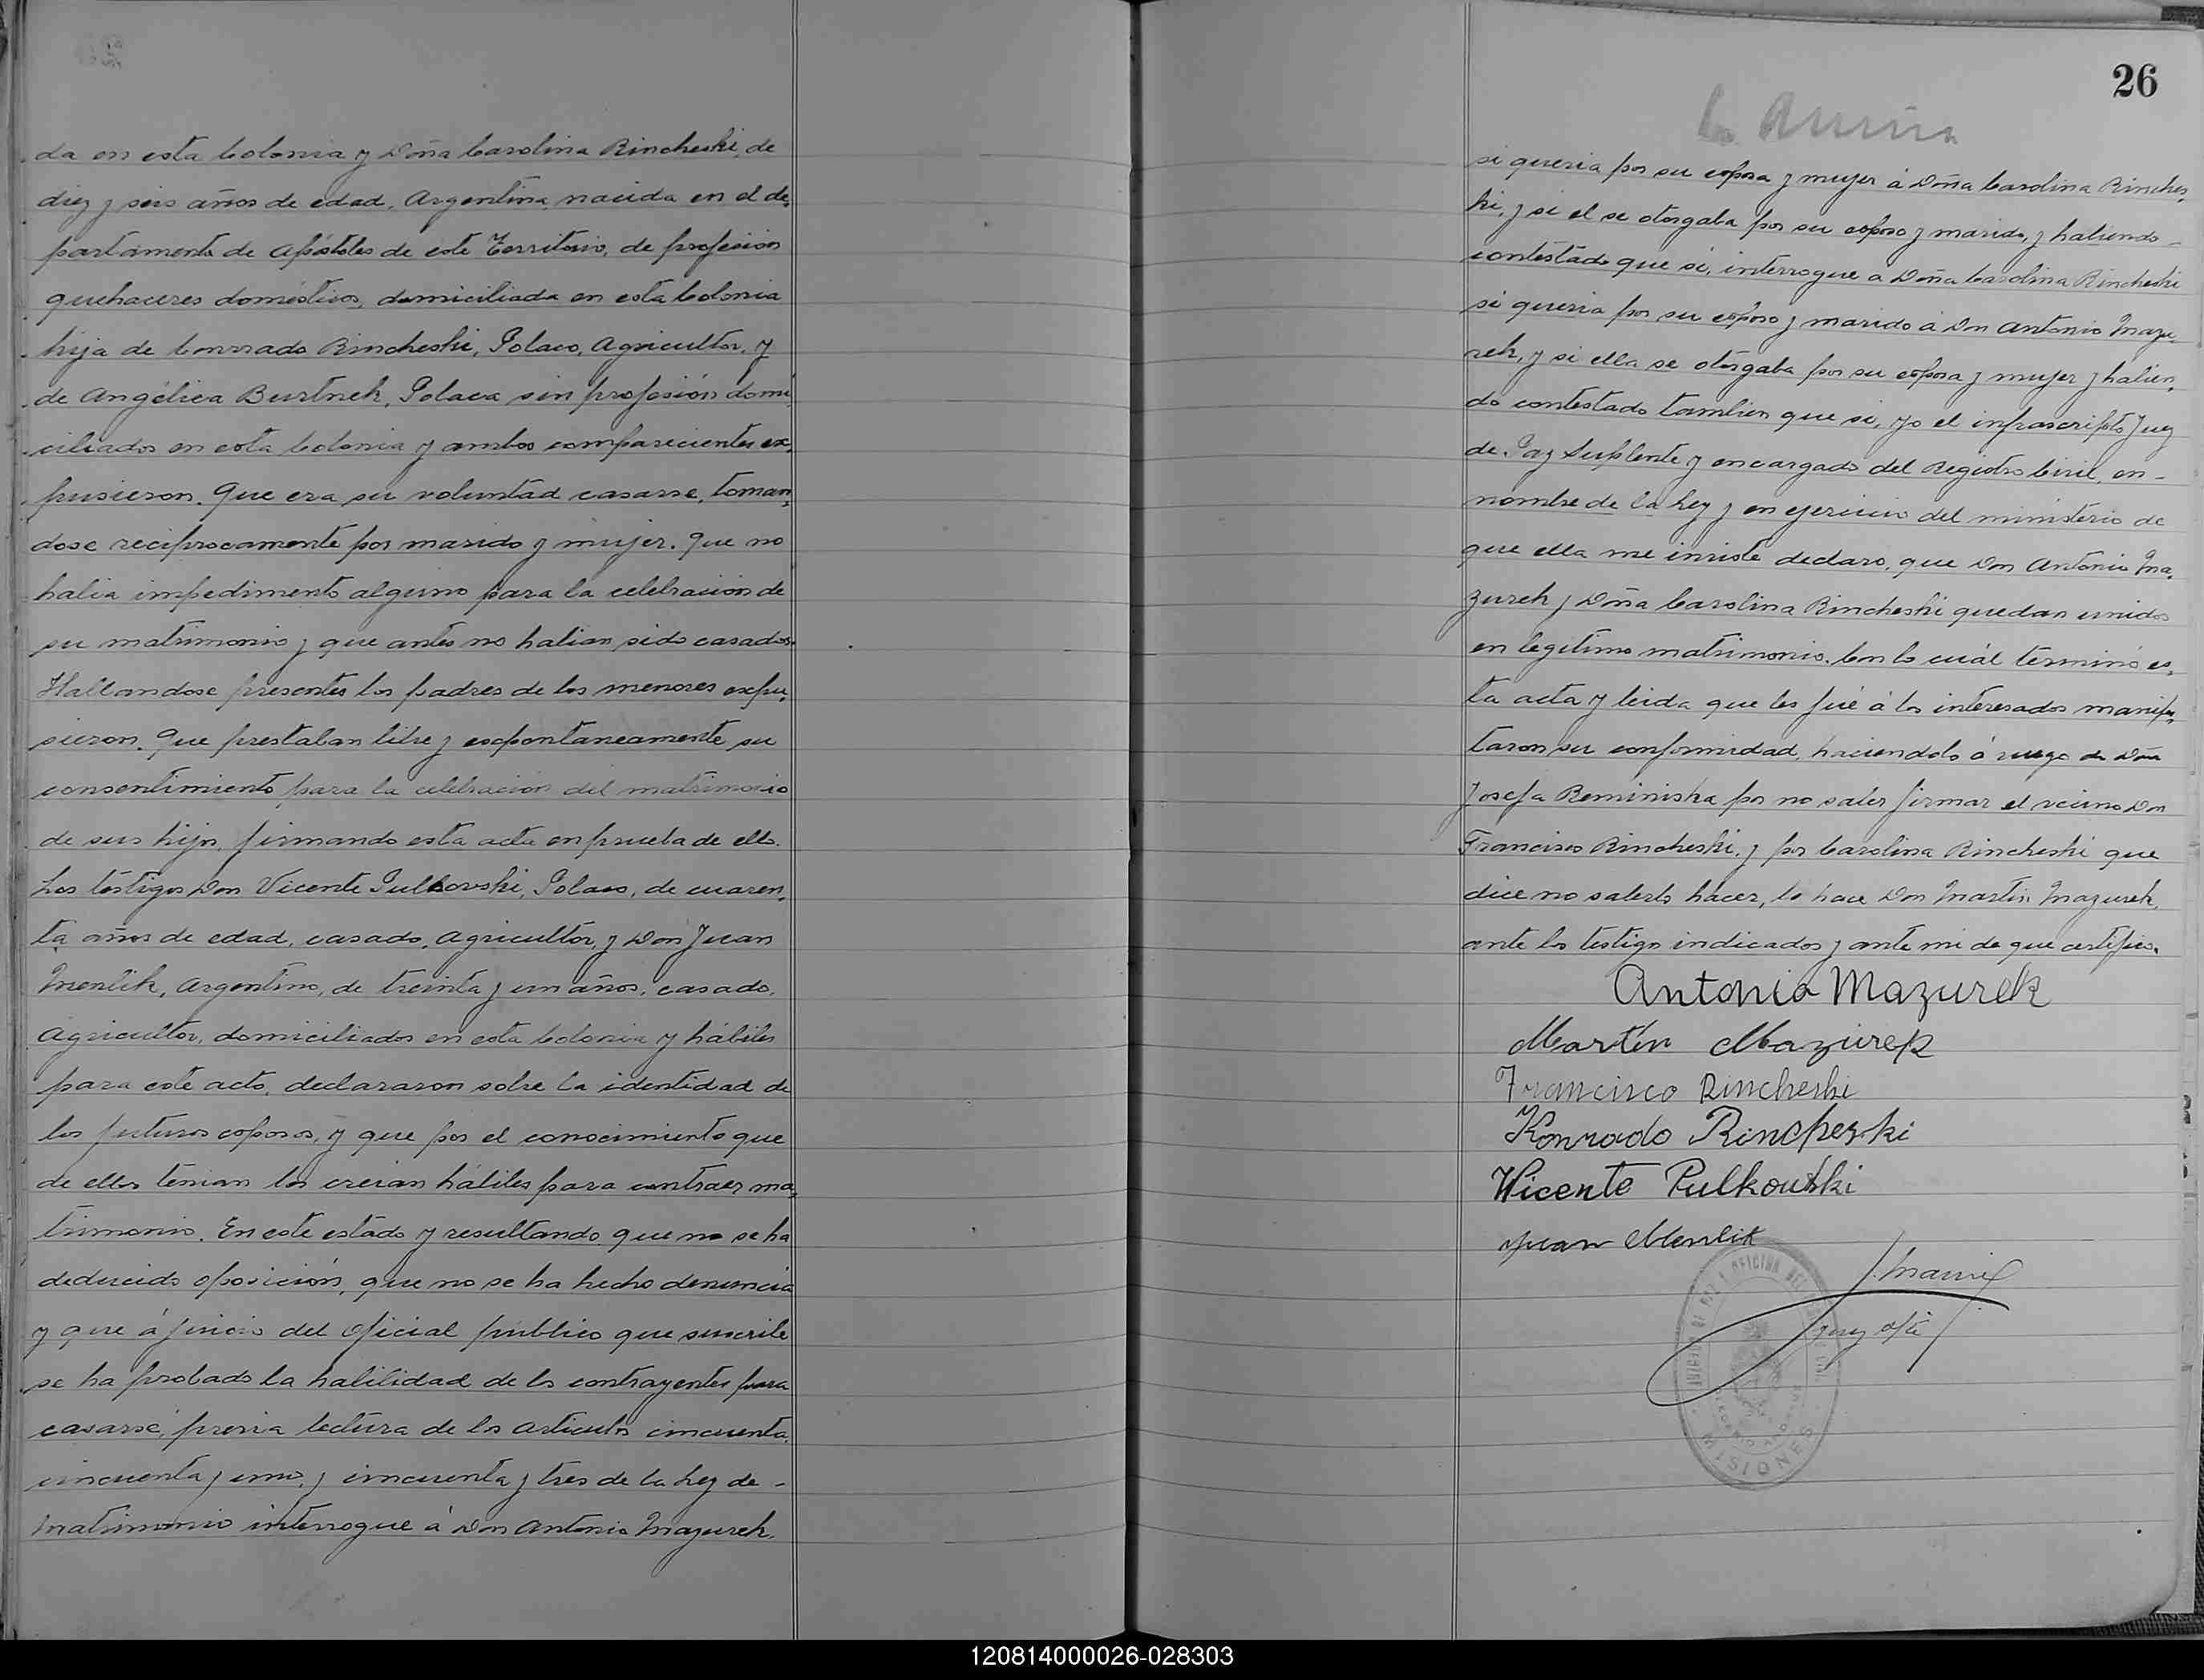 da en esta Colonia y Doña Carolina Rincheski, de
diez y seis años de edad, Argentina, nacida en el de,
partamento de Apóstoles de este Territorio, de profesión
quehaceres domésticos, domiciliada en esta Colonia
hija de Conrrado Rincheski, Polaco, Agricultor, y
de Angélica Burtnek, Polaca sin profesión domi,
ciliados en esta Colonia y ambos comparecientes ex,
pusieron. Que era su voluntad casarse, toman,
dose reciprocamente por marido y mujer. Que no
habia impedimento alguno para la celebración de
su matrimonio y que antes no habian sido casados.
Hallandose presentes los padres de los menores expu,
sieron. Que prestaban libre y expontaneamente su
consentimiento para la celebración del matrimonio
de sus hijos, firmando esta acta en prueba de ello.
Los testigos Don Vicente Pulkovski, Polaco, de cuaren,
ta años de edad, casado, Agricultor, y Don Juan
Menlik, Argentino, de treinta y un años, casado,
Agricultor, domiciliados en esta Colonia y hábiles
para este acto, declararon sobre la identidad de
los futuros esposos, y que por el conocimiento que
de ellos tenian los creian hábiles para contraer ma,
trimonio. En este estado y resultando que no se ha
deducido oposición, que no se ha hecho denuncia
y que á juicio del oficial público que suscribe
se ha probado la habilidad de los contrayentes para
casarse, previa lectura de los articulos cincuenta,
cincuenta y uno, y cincuenta y tres de la Ley de -
Matrimonio interrogue á Don Antonio Mazurek,
26
si queria por su esposa y mujer á Doña Carolina Rinches,
ki, y si el se otorgaba por su esposo y marido, y habiendo -
contestado que si, interrogue a Doña Carolina Rincheski
si queria por su esposo y marido á Don Antonio Mazu,
rek, y si ella se otorgaba por su esposa y mujer y habien,
do contestado tambien que si, yo el infrascripto Juez
de Paz Suplente y encargado del Registro Civil, en -
nombre de la Ley y en ejercicio del ministerio de
que ella me inviste declaro, que Don Antonio Ma,
zurek y Doña Carolina Rincheski quedan unidos
en legitimo matrimonio. Con lo cuál terminó es,
ta acta y leida que les fué á los interesados manifes,
taron su conformidad, haciendolo á ruego de Doña
Josefa Reminiska por no saber firmar el vecino Don
Francisco Rincheski, y por Carolina Rincheski que
dice no saberlo hacer, lo hace Don Martin Mazurek,
ante los testigos indicados y ante mi de que certifico.
Antonio Mazurek
Martin Mazurek
Francisco Rincheski
Konrado Rincheski
Wicente Pulkowski
Juan Menlik
MISIONES
120814000026-028303